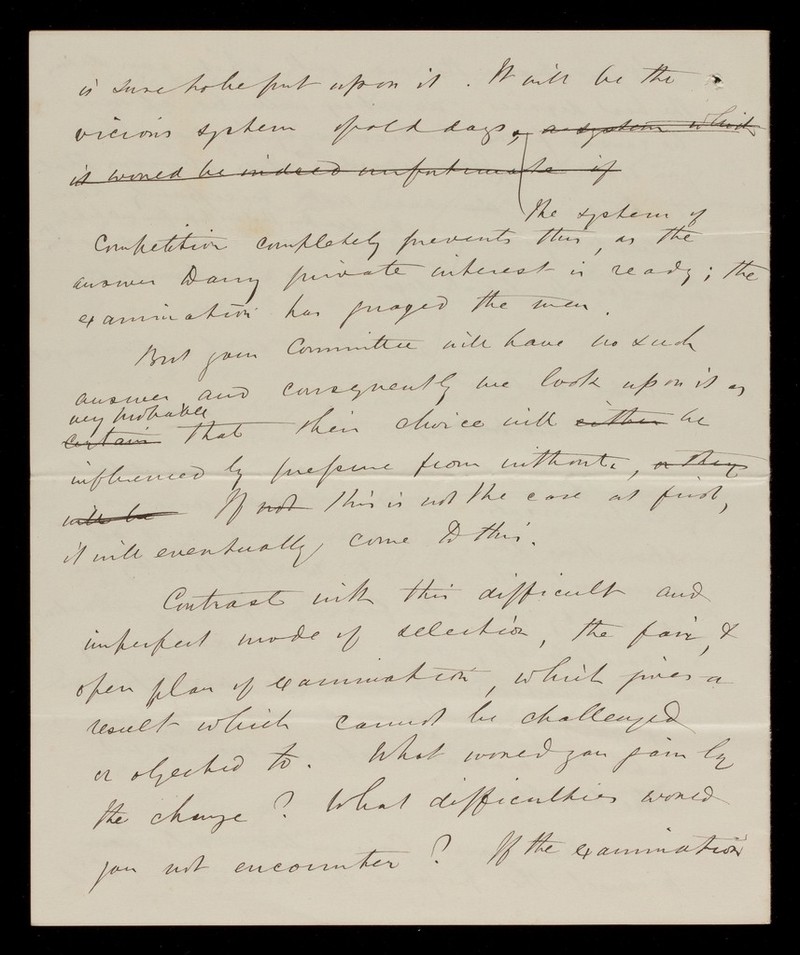 is sure to be put upon it. It will be the
vicious system of old days, a system which
it would be indeed unfortunate if
The system of
Competition completely prevents this, as the
answer to any private interest is ready; the
examination has gauged the men.
But your Committee will have no such
answer and consequently we look upon it as
very probable
certain that their choice will either be
influenced by pressure from without, or they
will be If not this is not the case at first,
it will eventually come to this.
Contrast with this difficult and
imperfect mode of selection, the fair, &
open plan of examination, which gives a
result which cannot be challenged
or objected to. What would you gain by
the change? What difficulties would
you not encounter? If the examination